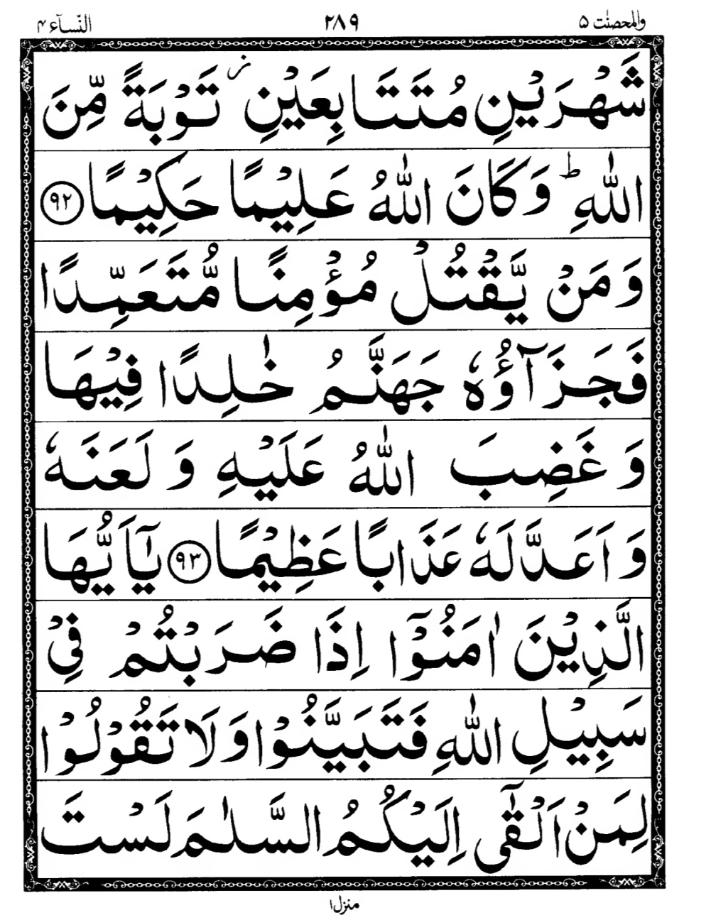 والمحصنٰت ۵ ۲۸۹ النّسآء ۴
شَهْرَيْنِ مُتَتَابِعَيْنِ ز تَوْبَةً مِّنَ
اللّٰهِ ؕ وَكَانَ اللّٰهُ عَلِيْمًا حَكِيْمًا ۹۲
وَمَنْ يَّقْتُلْ مُؤْمِنًا مُّتَعَمِّدًا
فَجَزَآؤُهٗ جَهَنَّمُ خٰلِدًا فِيْهَا
وَغَضِبَ اللّٰهُ عَلَيْهِ وَلَعَنَهٗ
وَاَعَدَّ لَهٗ عَذَابًا عَظِيْمًا ۹۳ يٰۤاَيُّهَا
الَّذِيْنَ اٰمَنُوْۤا اِذَا ضَرَبْتُمْ فِيْ
سَبِيْلِ اللّٰهِ فَتَبَيَّنُوْا وَلَا تَقُوْلُوْا
لِمَنْ اَلْقٰۤى اِلَيْكُمُ السَّلٰمَ لَسْتَ
منزل۱